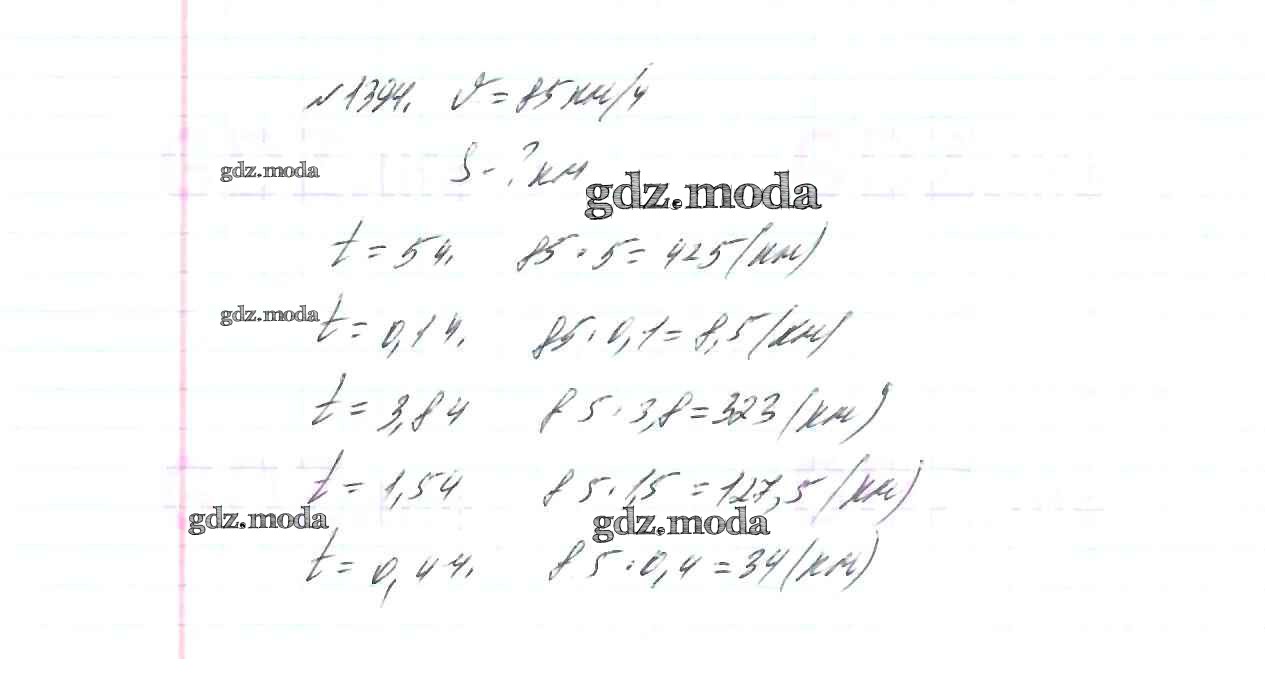 №1394. V = 85 км/ч
gdz.moda S - ? км gdz.moda
t = 5 ч. 85 · 5 = 425 (км)
gdz.moda t = 0,1 ч. 85 · 0,1 = 8,5 (км)
t = 3,8 ч 85 · 3,8 = 323 (км)
t = 1,5 ч 85 · 1,5 = 127,5 (км)
gdz.moda gdz.moda
t = 0,4 ч. 85 · 0,4 = 34 (км)